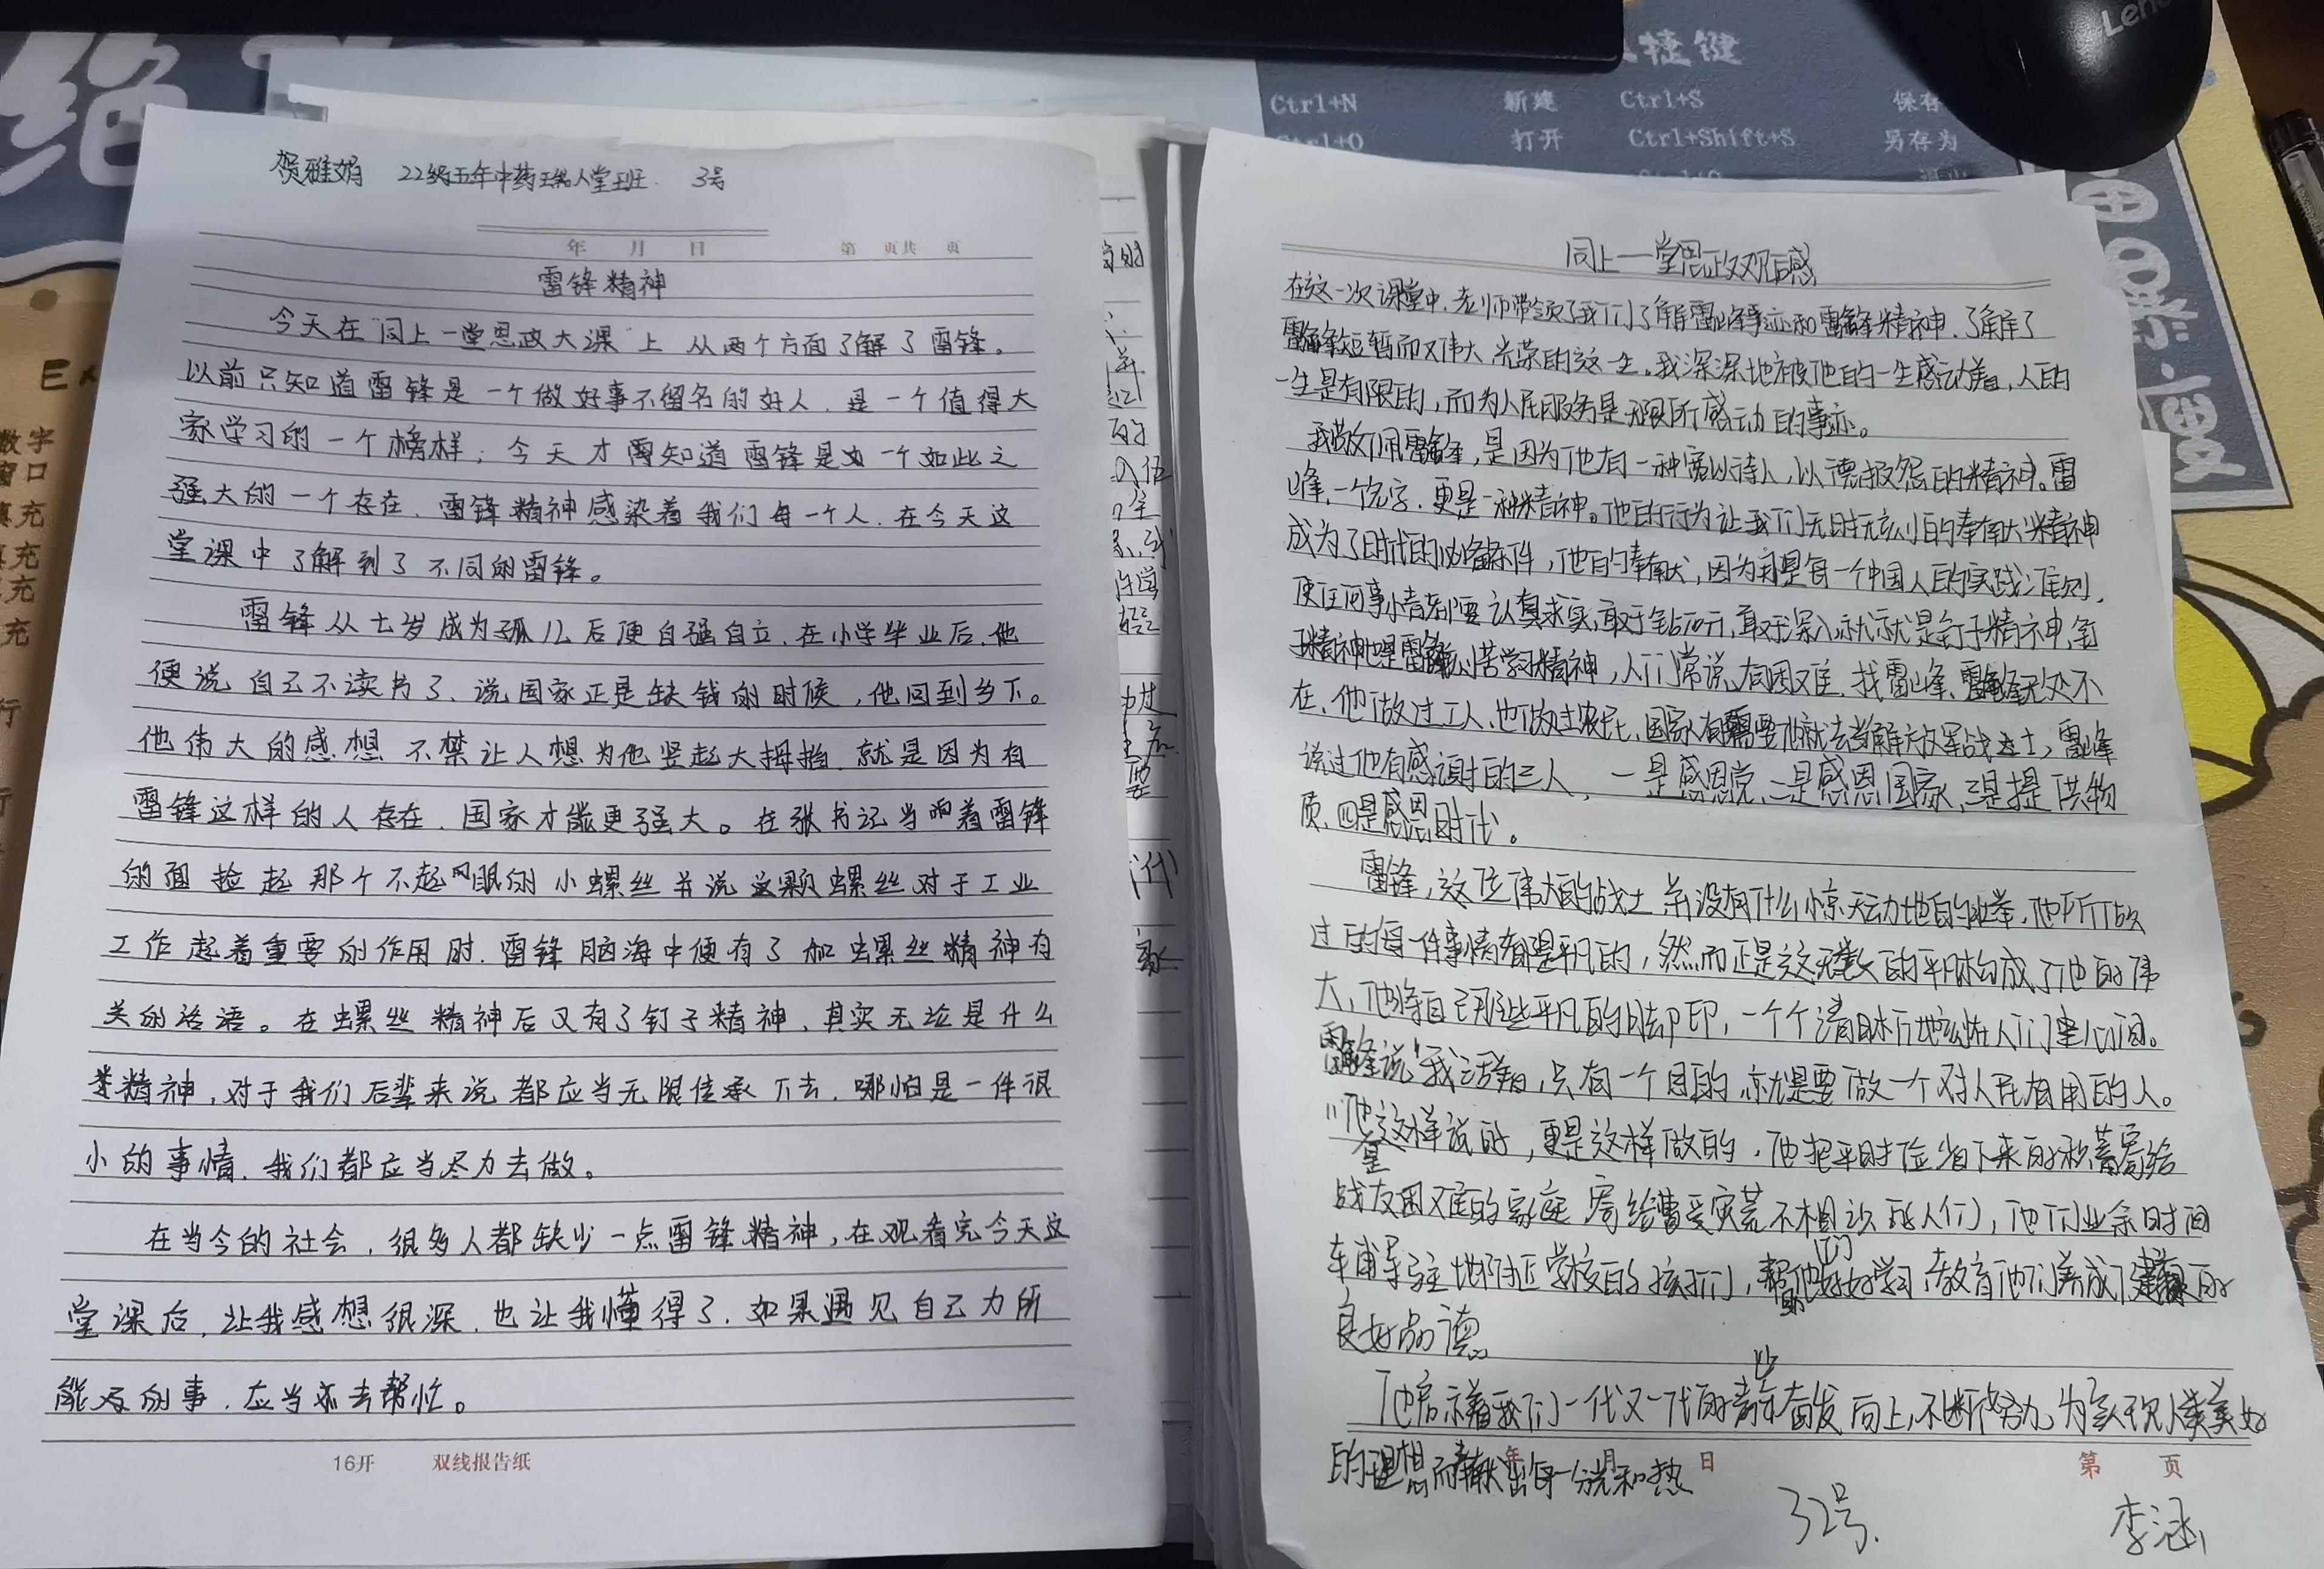 Leno
捷键
Ctrl+N 新建 Ctrl+S 保存
Ctrl+O 打开 Ctrl+Shift+S 另存为
绝
数字
窗口
填充
填充
充
充
行
行
贺雅娟 22级五年中药 人堂班 3号
年 月 日 第 页共 页
雷锋精神
今天在“同上一堂思政大课”上 从两个方面了解了雷锋。
以前只知道雷锋是一个做好事不留名的好人，是一个值得大
家学习的一个榜样；今天才知道雷锋是一个如此之
强大的一个存在，雷锋精神感染着我们每一个人，在今天这
堂课中了解到了不同的雷锋。
雷锋从七岁成为孤儿后便自强自立，在小学毕业后，他
便说自己不读书了、说国家正是缺钱的时候，他回到乡下。
他伟大的感想 不禁让人想为他竖起大拇指，就是因为有
雷锋这样的人存在，国家才能更强大。在张书记当着雷锋
的面捡起那个不起眼的小螺丝并说这颗螺丝对于工业
工作起着重要的作用时，雷锋脑海中便有了和螺丝精神有
关的话语。在螺丝精神后又有了钉子精神，其实无论是什么
精神，对于我们后辈来说都应当无限传承下去，哪怕是一件很
小的事情，我们都应当尽力去做。
在当今的社会，很多人都缺少一点雷锋精神，在观看完今天这
堂课后，让我感想很深，也让我懂得了，如果遇见自己力所
能及的事，应当去帮忙。
16开 双线报告纸
同上一堂思政观后感
在这一次课堂中，老师带领了我们了解雷峰事迹和雷锋精神，了解了
雷锋短暂而又伟大光荣的这一生。我深深地被他的一生感动着，人的
一生是有限的，而为人民服务是无限所感动的事迹。
我敬佩雷锋，是因为他有一种宽以待人，以德报怨的精神。雷
峰，一个名字，更是一种精神。他的行为让我们无时无刻的奉献精神
成为了时代的必备条件，他的奉献，因为则是每一个中国人的实践准则，
使任何事情都要认真求实，敢于钻研，敢于深入，就是钉子精神，钉
子精神也是雷锋刻苦学习精神，人们常说，有困难，找雷峰，雷锋无处不
在，他做过工人，也做过农民，国家有需要他就去当解放军战士，雷峰
说过他有感谢的三人，一是感恩党，二是感恩国家，三是提供物
质，四是感恩时代。
雷锋，这位伟大的战士，并没有什么惊天动地的壮举，他所做
过的每一件事情都是平凡的，然而正是这无数的平凡构成了他的伟
大，他将自己那些平凡的脚印，一个个清晰地刻在人们心间。
雷锋说“我活着，只有一个目的，就是要做一个对人民有用的人。
”他是这样说的，更是这样做的，他把平时俭省下来的积蓄寄给
战友困难的家庭，寄给遭受灾荒不相识的人们，他们业余时间
辅导驻地附近学校的孩子们，帮助他们好好学习，教育他们养成了的
良好品德。
他启示着我们一代又一代的青少年奋发向上，不断努力，为实现人类美好
的理想而奉献出每一分光和热
年 月 日 第 页
32号. 李涵